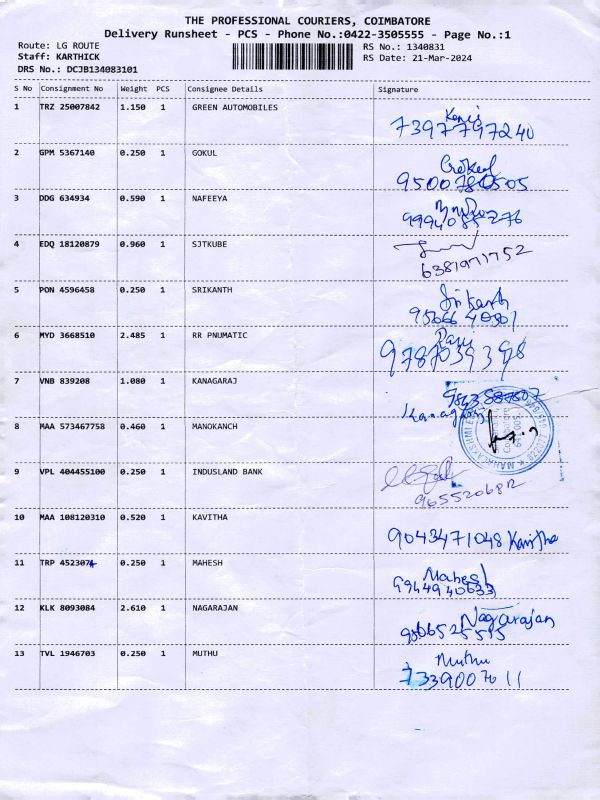 THE PROFESSIONAL COURIERS, COIMBATORE
Delivery Runsheet - PCS - Phone No.:0422-3505555 - Page No.:1
Route: LG ROUTE RS No.: 1340831
Staff: KARTHICK RS Date: 21-Mar-2024
DRS No.: DCJB134083101
S No Consignment No Weight PCS Consignee Details Signature
1 TRZ 25007842 1.150 1 GREEN AUTOMOBILES
7397797240
2 GPM 5367140 0.250 1 GOKUL
Gokul
9500780505
3 DDG 634934 0.590 1 NAFEEYA
4 EDQ 18120879 0.960 1 SJTKUBE
6381971752
5 PON 4596458 0.250 1 SRIKANTH
Srikanth
6 MYD 3668510 2.485 1 RR PNUMATIC
7 VNB 839208 1.080 1 KANAGARAJ
Kanagaraj
8 MAA 573467758 0.460 1 MANOKANCH
9 VPL 404455100 0.250 1 INDUSLAND BANK
10 MAA 108120310 0.520 1 KAVITHA
9043471048 Kavitha
11 TRP 452307 0.250 1 MAHESH
Mahesh
9944940633
12 KLK 8093084 2.610 1 NAGARAJAN
Nagarajan
13 TVL 1946703 0.250 1 MUTHU
Muthu
7339007611